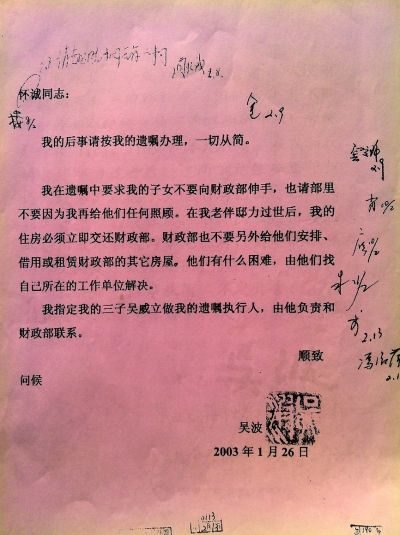 怀诚同志：
金 2.9
我的后事请按我的遗嘱办理，一切从简。
我在遗嘱中要求我的子女不要向财政部伸手，也请部里
不要因为我再给他们任何照顾。在我老伴邸力过世后，我的
住房必须立即交还财政部。财政部也不要另外给他们安排、
借用或租赁财政部的其它房屋。他们有什么困难，由他们找
自己所在的工作单位解决。
我指定我的三子吴威立做我的遗嘱执行人，由他负责和
财政部联系。
2.13
顺致
问候
吴波
2003 年 1 月 26 日